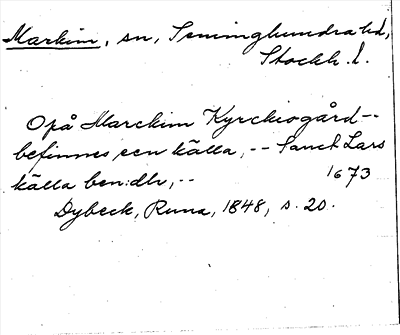 Markim, sn, Seminghundra hd,
Stockh. l.
Opå Marckim Kyrckiogård --
befinnes een källa, -- Sanct Lars
källa ben:dh, --
1673
Dybeck, Runa, 1848, s. 20.